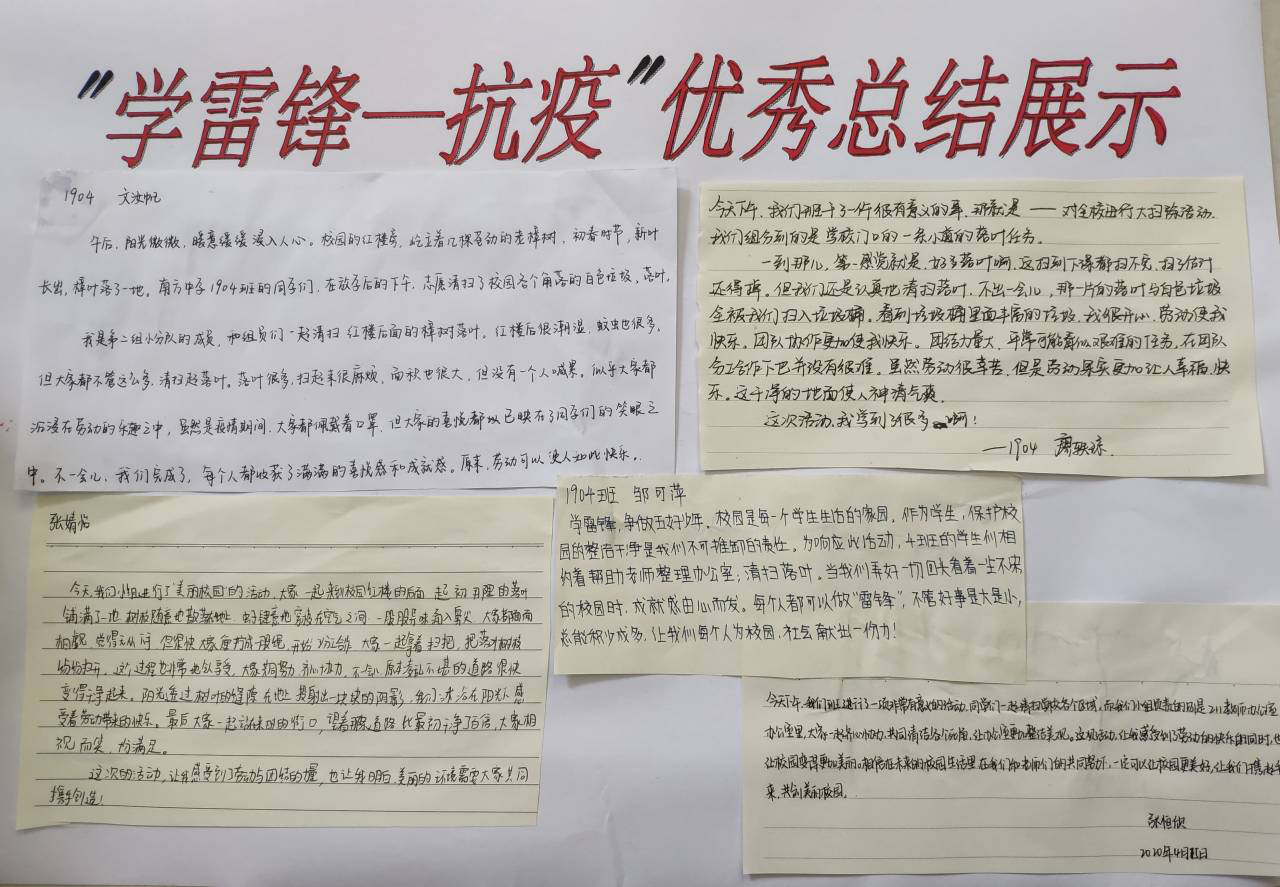 "学雷锋—抗疫"优秀总结展示
1904 文汝帆
午后,阳光微微,暖意缓缓浸入人心。校园的红楼旁,屹立着几棵苍劲的老樟树,初春时节,新叶
长出,樟叶落了一地。南方中学1904班的同学们,在放学后的下午,志愿清扫了校园各个角落的白色垃圾,落叶。
我是第二组小分队的成员,和组员们一起清扫红楼后面的樟树落叶。红楼后很潮湿,蚊虫也很多,
但大家都不管这么多,清扫起落叶。落叶很多,扫起来很麻烦,面积也很大,但没有一个人喊累。似乎大家都
沉浸在劳动的乐趣之中,虽然是疫情期间,大家都佩戴着口罩,但大家的喜悦都已映在了同学们的笑眼之
中。不一会儿,我们完成了,每个人都收获了满满的喜悦感和成就感。原来,劳动可以使人如此快乐。
今天下午,我们班干了一件很有意义的事,那就是——对全校进行大扫除活动.
我们组分到的是学校门口的一条小道的落叶任务。
一到那儿,第一感觉就是,好多落叶啊,这扫到下课都扫不完,扫了估计
还得掉。但我们还是认真地清扫落叶,不出一会儿,那一片的落叶与白色垃圾
全被我们扫入垃圾桶。看到垃圾桶里面丰富的垃圾,我很开心,劳动使我
快乐。团队协作更加使我快乐。团结力量大,平常可能看似艰难的任务,在团队
分工合作下也并没有很难。虽然劳动很辛苦,但是劳动果实更加让人幸福、快
乐。这干净的地面使人神清气爽。
这次活动,我学到了很多啊!
——1904
张婧怡
今天,我们小组进行了"美丽校园"的活动,大家一起来到校园红楼的后面
铺满了一地
相觑
变得干净起来。阳光透过树叶的缝隙在地上投射出一块块的阴影,我们沐浴在阳光下感
受着劳动带来的快乐。最后大家一起
视而笑,
这次的活动,让我感受到了劳动与团结的力量,也让我明白,美丽的环境需要大家共同
携手创造!
1904班 邹可萍
学雷锋,争做五好少年。校园是每一个学生生活的家园。作为学生,保护校
园的整洁干净是我们不可推卸的责任。为响应此活动,4班的学生们相
约着帮助老师整理办公室;清扫落叶。当我们弄好一切回头看着一尘不染
的校园时,成就感由心而发。每个人都可以做"雷锋",不管好事是大是小,
总能积少成多,让我们每个人为校园,社会献出一份力!
今天下午,我们班进行了一项非常有意义的活动,同学们一起清扫学校各个区域,而我们小组负责的则是211教师办公室
办公室里,大家一起齐心协力,共同清洁各个角落,让办公室更加整洁美观。这项活动,让我感受到了劳动的快乐的同时,也
让校园变得更加美丽。相信在未来的校园生活里,在我们和老师们的共同努力下,一定可以让校园更美好,让我们携起手
来,共创美丽校园。
2020年4月